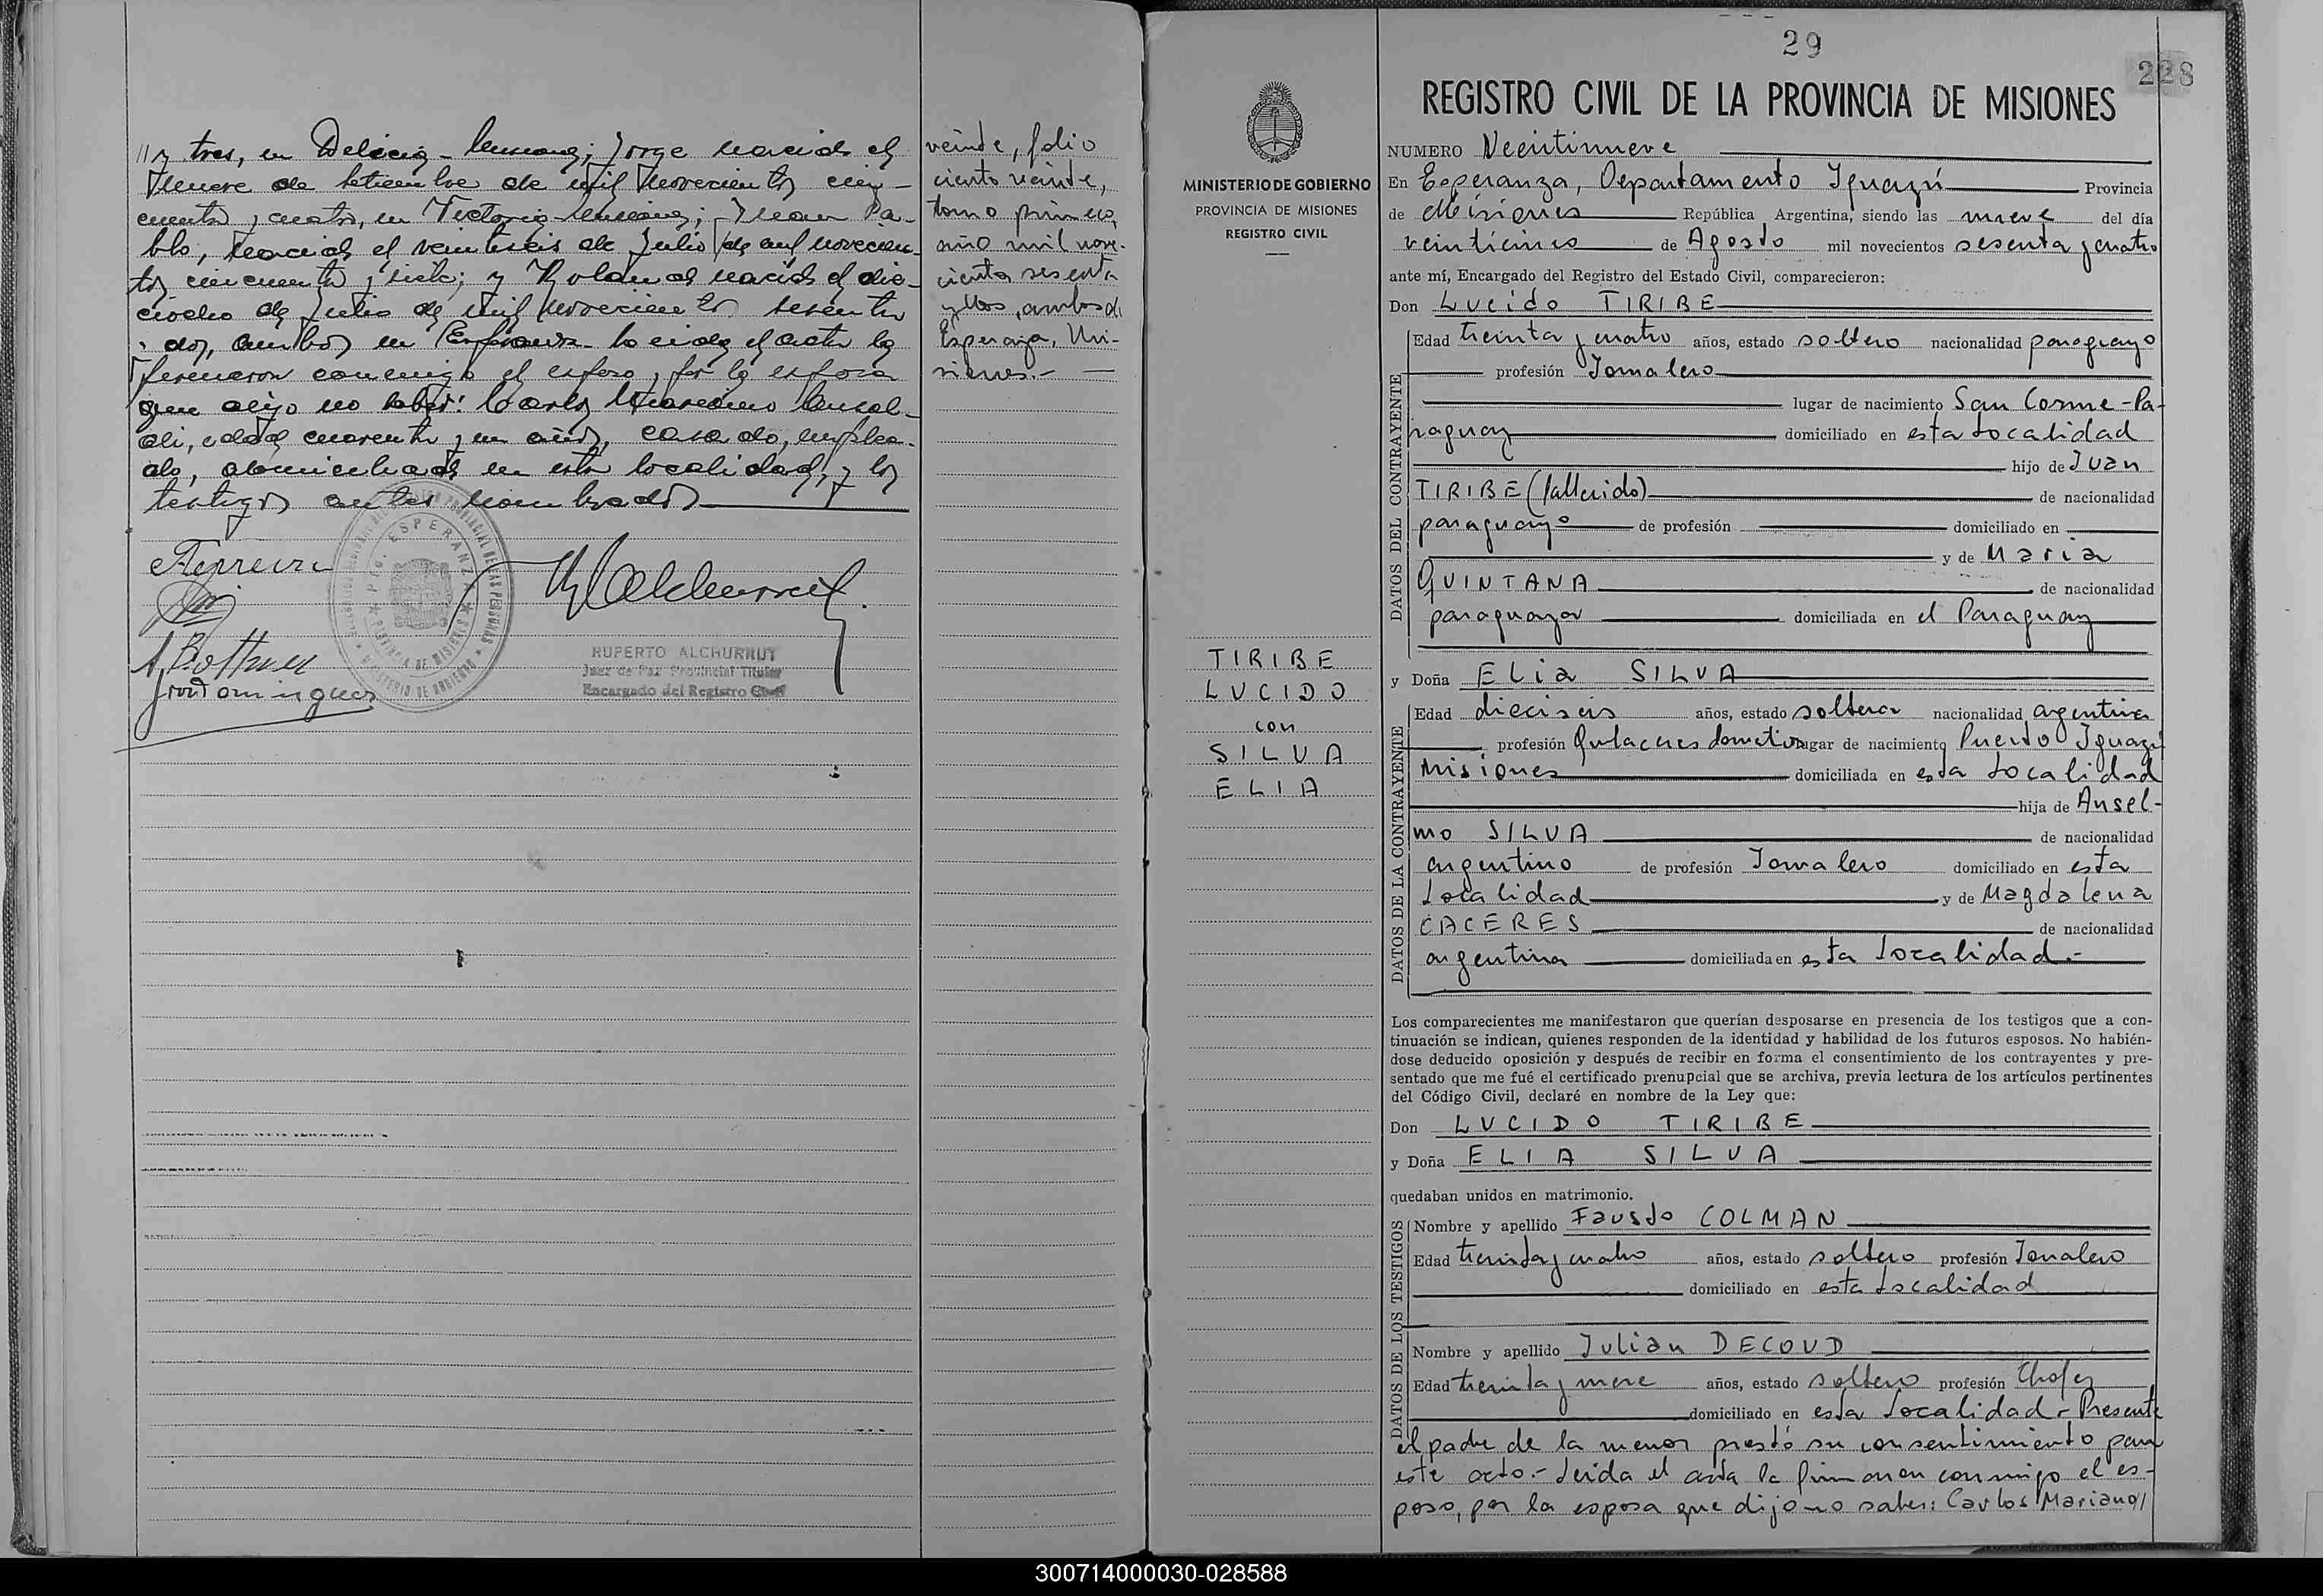 // y tres, en Delicia - Misiones; Jorge nacido el
nueve de setiembre de mil novecientos cin-
cuenta y cuatro, en Victoria - Misiones; Juan Pa-
blo, nacido el veintiseis de Julio de mil novecien-
tos cincuenta y siete; y Rolando nacido el die-
ciocho de Julio de mil novecientos sesenta
y dos, ambos en Esperanza - Leida el acta la
firmaron conmigo el esposo, por la esposa
que dijo no saber: Carlos Mariano
edad cuarenta y un años, casado, emplea-
do, domiciliado en esta localidad, y los
testigos antes nombrados
veinte, folio
ciento veinte,
tomo primero,
año mil nove-
cientos sesenta
y dos, ambos de
Esperanza, Mi-
siones.-
Ferreira
PCIA. ESPERANZA
PROVINCIA DE MISIONES
MINISTERIO DE GOBIERNO
RUPERTO ALCHURRUT
Juez de Paz Provincial Titular
Encargado del Registro Civil
Dominguez
MINISTERIO DE GOBIERNO
PROVINCIA DE MISIONES
REGISTRO CIVIL
TIRIBE
LUCIDO
con
SILVA
ELIA
29
228
REGISTRO CIVIL DE LA PROVINCIA DE MISIONES
NUMERO Veintinueve
En Esperanza, Departamento Iguazú Provincia
de Misiones República Argentina, siendo las nueve del día
veinticinco de Agosto mil novecientos sesenta y cuatro
ante mí, Encargado del Registro del Estado Civil, comparecieron:
Don Lucido TIRIBE
DATOS DEL CONTRAYENTE
Edad treinta y cuatro años, estado soltero nacionalidad paraguayo
profesión Jornalero
lugar de nacimiento San Cosme - Pa-
raguay domiciliado en esta Localidad
hijo de Juan
TIRIBE (fallecido) de nacionalidad
paraguayo de profesión domiciliado en
y de Maria
QUINTANA de nacionalidad
paraguaya domiciliada en el Paraguay
y Doña Elia SILVA
DATOS DE LA CONTRAYENTE
Edad dieciseis años, estado soltera nacionalidad argentina
profesión Quehaceres domesticos lugar de nacimiento Puerto Iguazú
Misiones domiciliada en esta Localidad
hija de Ansel-
mo SILVA de nacionalidad
argentino de profesión Jornalero domiciliado en esta
Localidad y de Magdalena
CACERES de nacionalidad
argentina domiciliada en esta Localidad.-
Los comparecientes me manifestaron que querían desposarse en presencia de los testigos que a con-
tinuación se indican, quienes responden de la identidad y habilidad de los futuros esposos. No habién-
dose deducido oposición y después de recibir en forma el consentimiento de los contrayentes y pre-
sentado que me fué el certificado prenupcial que se archiva, previa lectura de los artículos pertinentes
del Código Civil, declaré en nombre de la Ley que:
Don LUCIDO TIRIBE
y Doña ELIA SILVA
quedaban unidos en matrimonio.
DATOS DE LOS TESTIGOS
Nombre y apellido Fausto COLMAN
Edad treinta y cuatro años, estado soltero profesión Jornalero
domiciliado en esta Localidad
Nombre y apellido Julian DECOUD
Edad treinta y nueve años, estado soltero profesión Chofer
domiciliado en esta Localidad - Presente
el padre de la menor prestó su consentimiento para
este acto.- Leida el acta la firmaron conmigo el es-
poso, por la esposa que dijo no saber: Carlos Mariano//
300714000030-028588